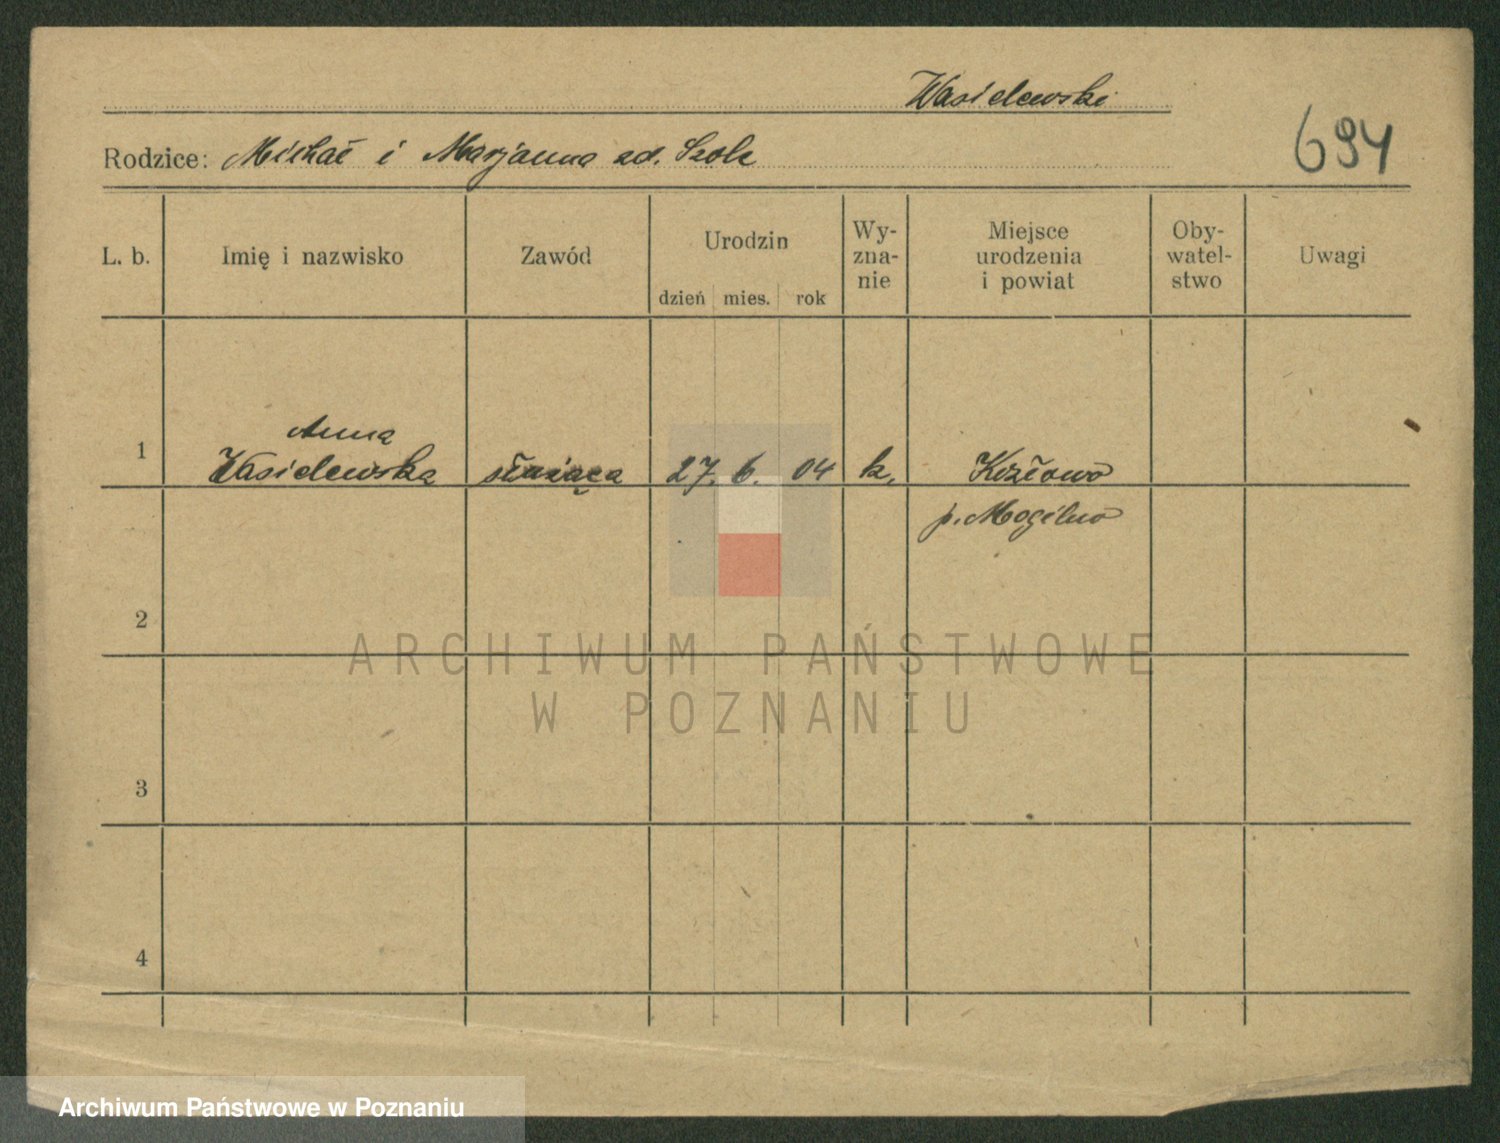 Wasielewski
Rodzice: Michał i Marjanna zd. Szolc
694
L. b. Imię i nazwisko Zawód Urodzin dzień mies. rok Wy-zna-nie Miejsce urodzenia i powiat Oby-watel-stwo Uwagi
Anna
1 Wasielewska służąca 27. 6. 04 k. Kozłowo
p. Mogilno
2
ARCHIWUM PAŃSTWOWE
W POZNANIU
3
4
Archiwum Państwowe w Poznaniu